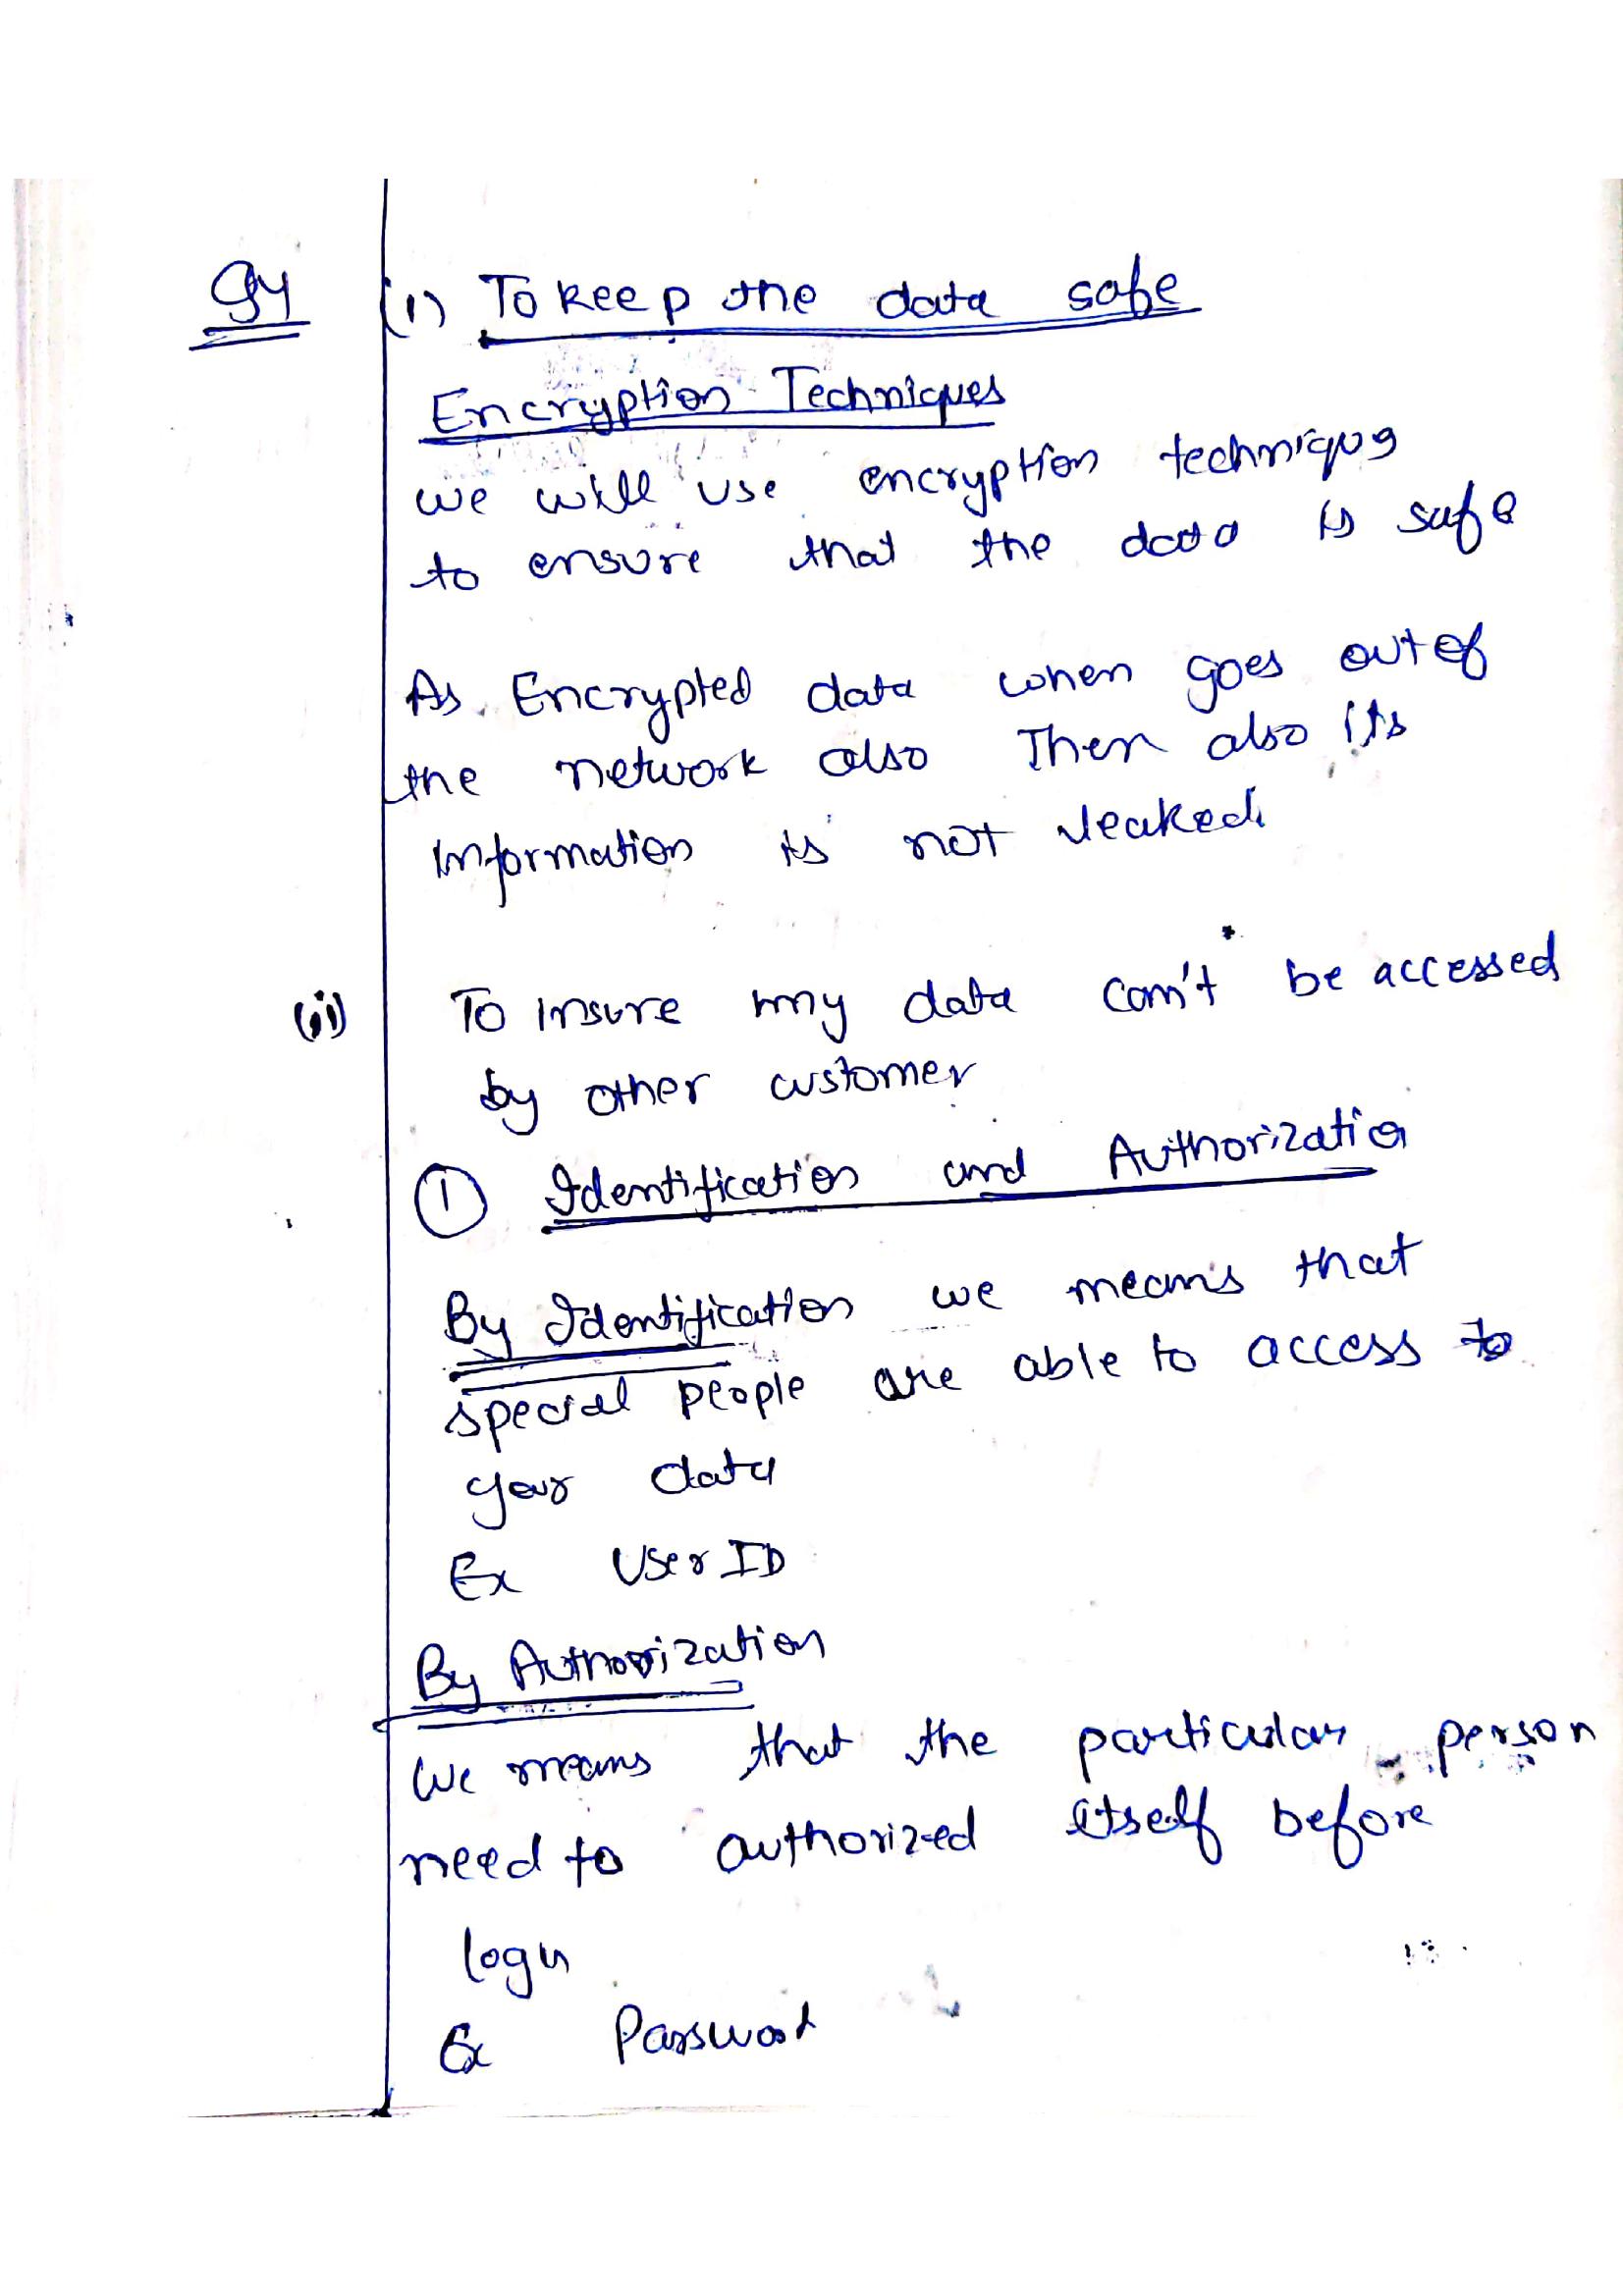 94 (i) To keep the data safe
Encryption Techniques
we will use encryption technique
to ensure that the data is safe
As Encrypted data when goes out of
the network also Then also its
information is not leaked.
(ii) To insure my data can't be accessed
by other customer
① Identification and Authorization
By Identification we means that
special people are able to access to
your data
Ex User ID
By Authorization
We means that the particular person
need to authorized itself before
login
Ex Password